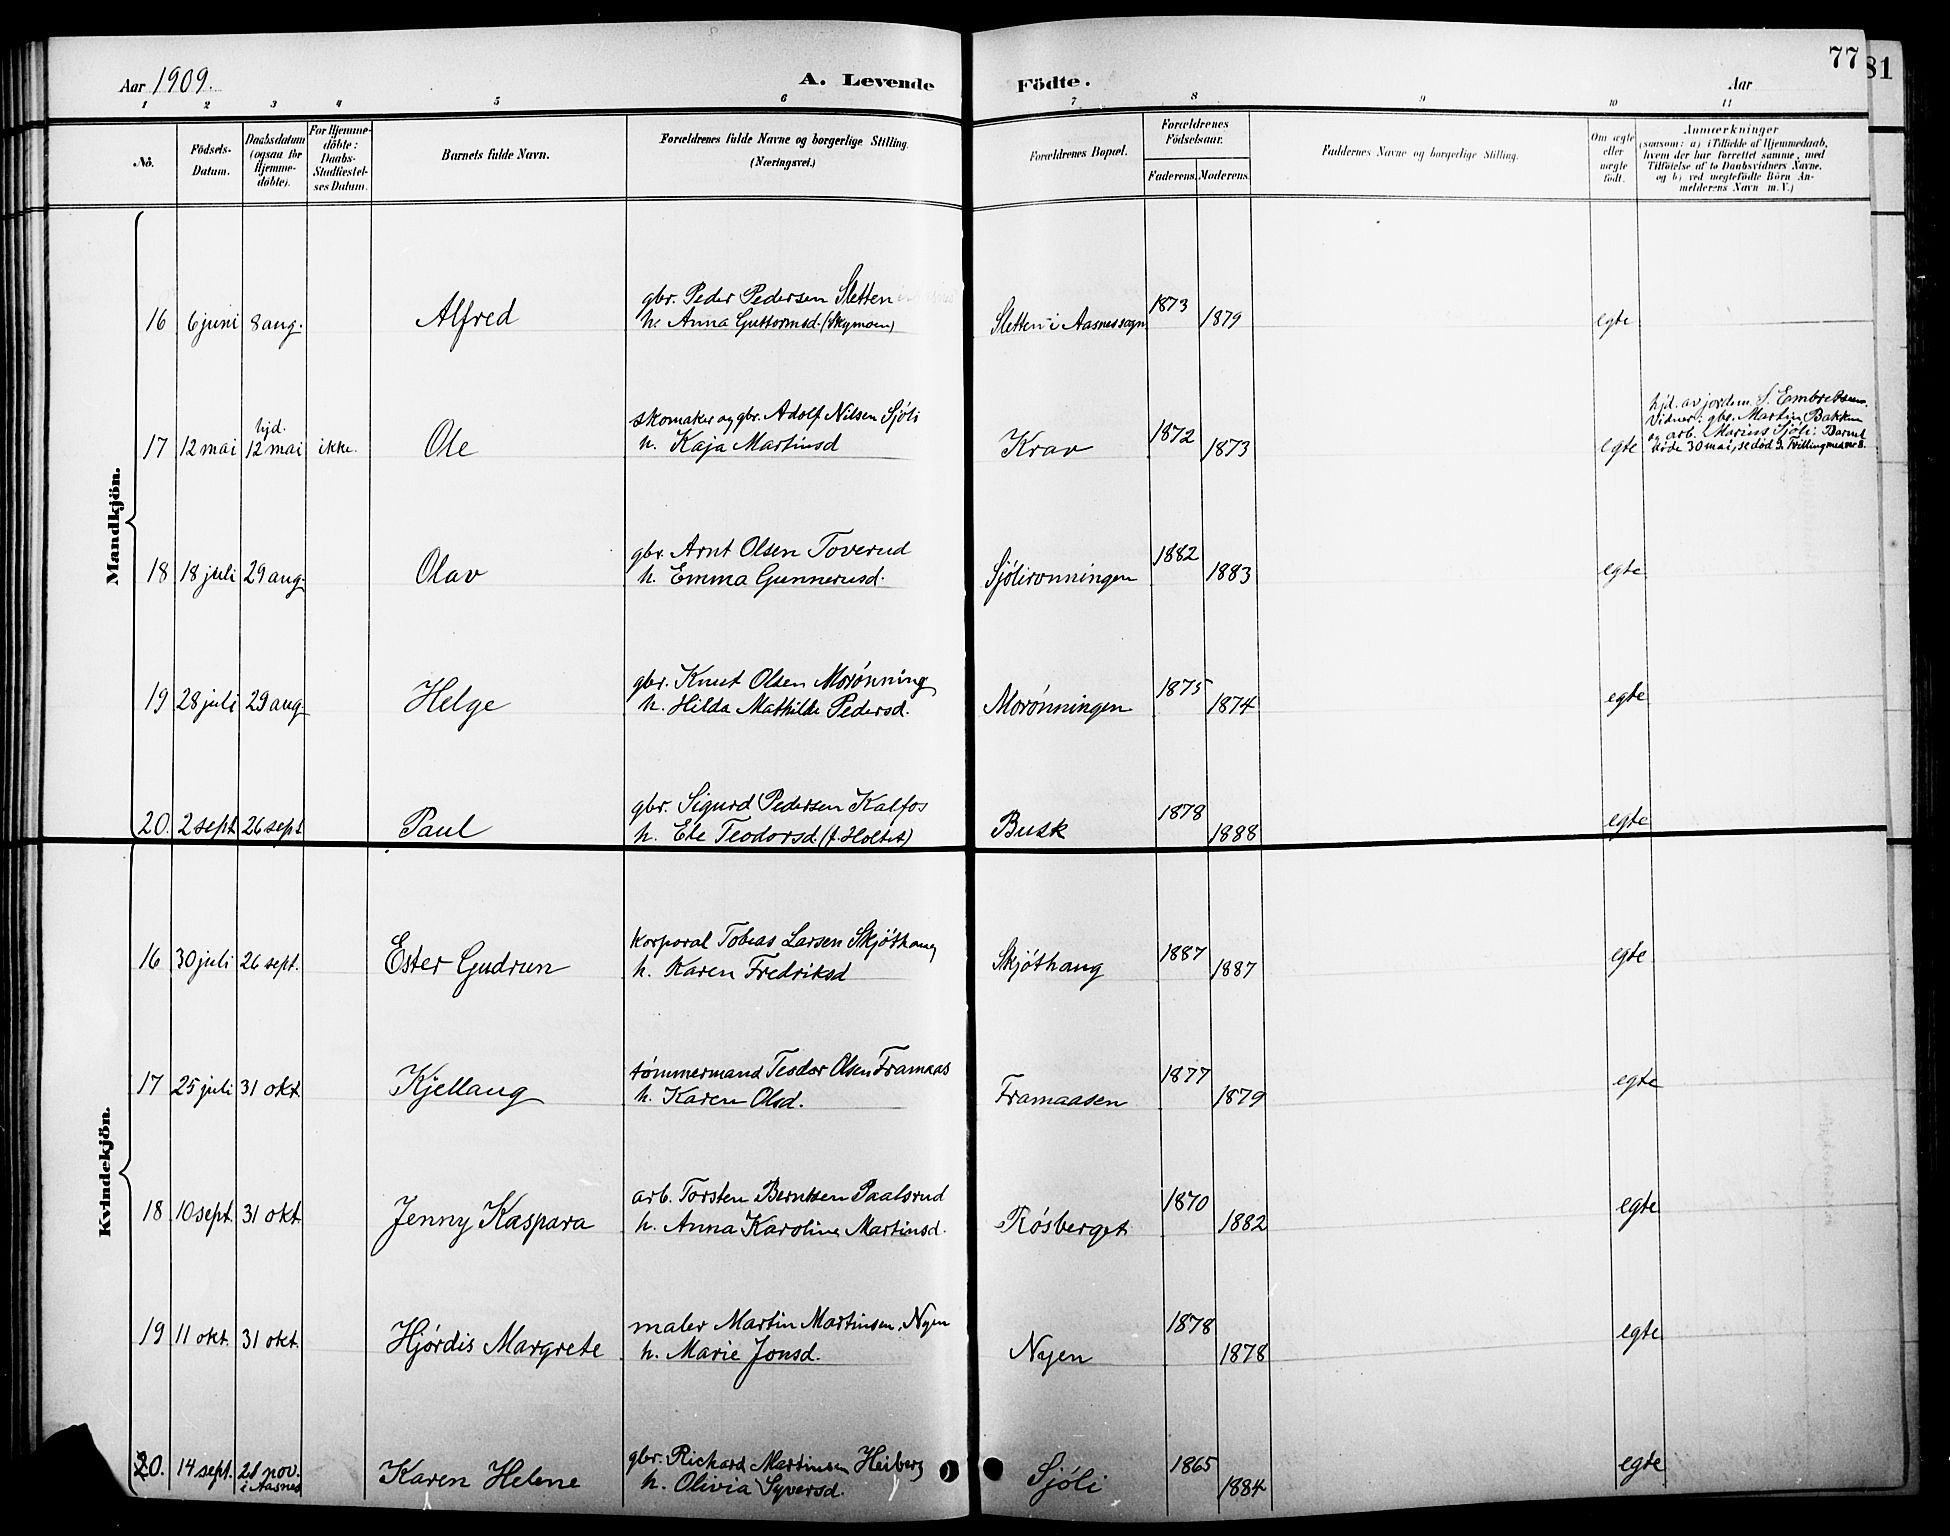 Aar 1909.
A. Levende Födte.
Aar
77
81
1 2 3 4 5 6 7 8 9 10 11
No.
Födsels-
Datum.
Daabsdatum
(ogsaa for
Hjemme-
döbte).
For Hjemme-
döbte:
Daabs-
Stadfæstel-
ses Datum.
Barnets fulde Navn.
Forældrenes fulde Navne og borgerlige Stilling.
(Næringsvei.)
Forældrenes Bopæl.
Forældrenes
Födselsaar.
Faderens. Moderens.
Faddernes Navne og borgerlige Stilling.
Om ægte
eller
uægte
födt.
Anmærkninger
(saasom: a) i Tilfælde af Hjemmedaab,
hvem der har forrettet samme, med
Tilföielse af to Daabsvidners Navne,
og b) ved uegtefödte Börn An-
melderens Navn m. V.)
Mandkjön.
gbr. Peder Pedersen Sletten
16 6 juni 8 aug. Alfred h. Anna Guttormsd. (Skymoen) Sletten i Aasnes sogn 1873 1879 egte
hjd.
skomaker og gbr. Adolf Nilsen Sjöli
17 12 mai 12 mai ikke. Ole h. Kaja Martinsd Krav 1872 1873 egte
hjd. av jordem. S. Embretsen.
Vidner: gbr. Martin Bakken
og arb. Marius Sjöli. Barnet
döde 30 mai, se död 3. Tvilling med nr 8.
gbr. Arnt Olsen Toverud
18 18 juli 29 aug. Olav h. Emma Gunnerusd. Sjölirønningen 1882 1883 egte
gbr. Knut Olsen Morønning
19 28 juli 29 aug Helge h. Hilda Mathilde Pedersd. Morønningen 1875 1874 egte
gbr. Sigurd Pedersen Kalfos
20. 2 sept 26 sept Paul h. Ete Teodorsd. (f. Holtet) Busk 1878 1888 egte
Kvindekjön.
korporal Tobias Larsen Skjöthaug
16 30 juli 26 sept. Ester Gudrun h. Karen Fredriksd Skjöthaug 1887 1887 egte
tømmermand Teodor Olsen Framaas
17 25 juli 31 okt. Kjellaug h. Karen Olsd. Framaasen 1877 1879 egte
arb. Torsten Berntsen Paalsrud
18 10 sept. 31 okt. Jenny Kaspara h. Anna Karoline Martinsd. Rösberget 1870 1882 egte
maler Martin Martinsen Nyen
19 11 okt. 31 okt. Hjördis Margrete h. Marie Jonsd. Nyen 1878 1878 egte
gbr. Richard Martinsen Heiberg
20. 14 sept. 21 nov. Karen Helene h. Olivia Syversd. Sjöli 1865 1884 egte
i Aasnes